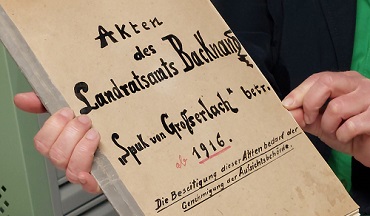 Akten
des
Landratsamts Backnang
„Spuk von Großerlach" betr.
ab 1916.
Die Beseitigung dieser Akten bedarf der
Genehmigung der Aufsichtsbehörde.